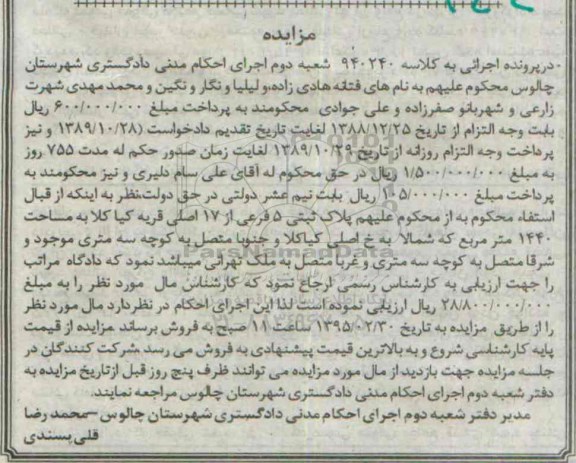 مزایده
درپرونده اجرائی به کلاسه ۹۴۰۲۴۰ شعبه دوم اجرای احکام مدنی دادگستری شهرستان
چالوس محکوم علیهم به نام های فتانه هادی زاده،و لیلیا و نگار و نگین و محمد مهدی شهرت
زارعی و شهربانو صفرزاده و علی جوادی محکومند به پرداخت مبلغ ۶۰۰/۰۰۰/۰۰۰ ریال
بابت وجه التزام از تاریخ ۱۳۸۸/۱۲/۲۵ لغایت تاریخ تقدیم دادخواست (۱۳۸۹/۱۰/۲۸ و نیز
پرداخت وجه التزام روزانه از تاریخ ۱۳۸۹/۱۰/۲۹ لغایت زمان صدور حکم له مدت ۷۵۵ روز
به مبلغ ۱/۵۰۰/۰۰۰/۰۰۰ ریال در حق محکوم له آقای علی سام دلیری و نیز محکومند به
پرداخت مبلغ ۱۰۵/۰۰۰/۰۰۰ ریال بابت نیم عشر دولتی در حق دولت،نظر به اینکه از قبال
استفاء محکوم به از محکوم علیهم پلاک ثبتی ۵ فرعی از ۱۷ اصلی قریه کیا کلا به مساحت
۱۴۴۰ متر مربع که شمالا به خ اصلی کیاکلا و جنوبا متصل به کوچه سه متری موجود و
شرقا متصل به کوچه سه متری و غربا متصل به ملک تهرانی میباشد نمود که دادگاه مراتب
را جهت ارزیابی به کارشناس رسمی ارجاع نمود که کارشناس مال مورد نظر را به مبلغ
۲۸/۸۰۰/۰۰۰/۰۰۰ ریال ارزیابی نموده است لذا این اجرای احکام در نظردارد مال مورد نظر
را از طریق مزایده به تاریخ ۱۳۹۵/۰۲/۳۰ ساعت ۱۱ صبح به فروش برساند مزایده از قیمت
پایه کارشناسی شروع و به بالاترین قیمت پیشنهادی به فروش می رسد ،شرکت کنندگان در
جلسه مزایده جهت بازدید از مال مورد مزایده می توانند ظرف پنچ روز قبل ازتاریخ مزایده به
دفتر شعبه دوم اجرای احکام مدنی دادگستری شهرستان چالوس مراجعه نمایند.
مدیر دفتر شعبه دوم اجرای احکام مدنی دادگستری شهرستان چالوس –محمدرضا
قلی پسندی
ParsNamadData